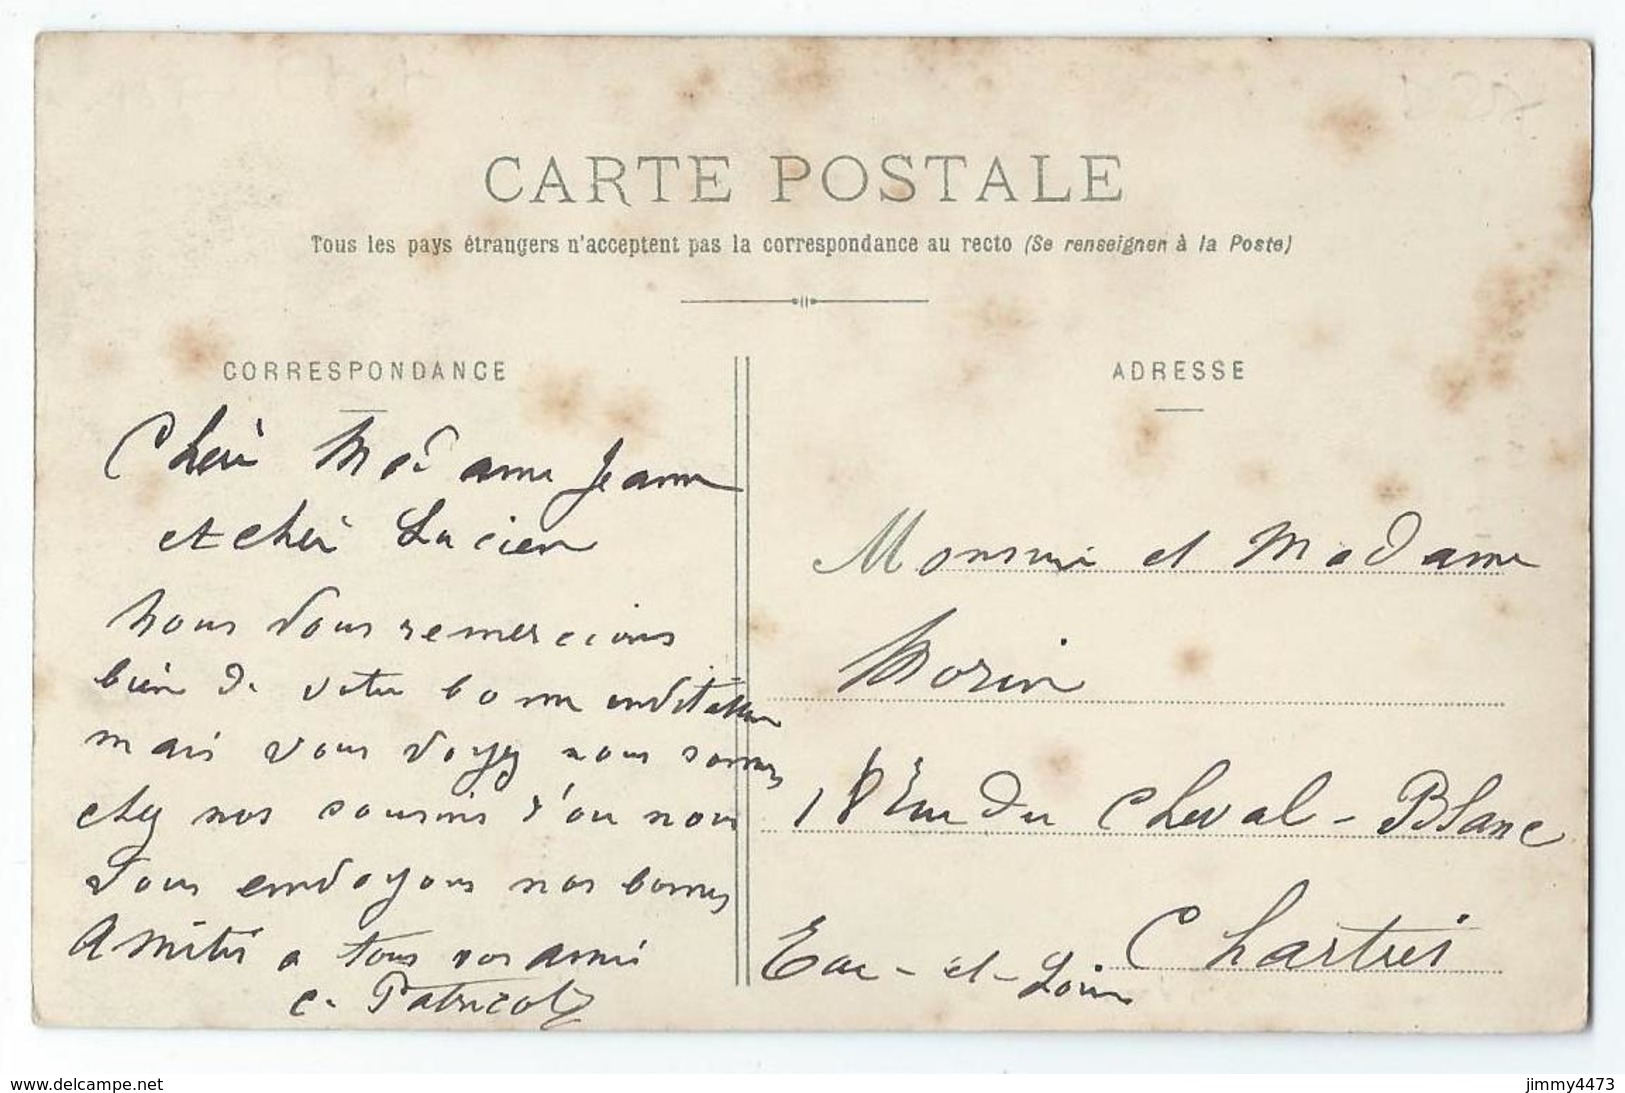 CARTE POSTALE
Tous les pays étrangers n'acceptent pas la correspondance au recto (Se renseigner à la Poste)
CORRESPONDANCE
Chère Madame Jeanne
et cher Lucien
Nous vous remercions
bien de votre bonne invitation
mais vous voyez nous sommes
chez nos cousins d'ou nous
vous envoyons nos bonnes
Amitiés a tous vos amis
C. Patricot
ADRESSE
Monsieur et Madame
Morin
18 Rue du Cheval-Blanc
Chartres
Eure-et-Loir
www.delcampe.net
jimmy4473